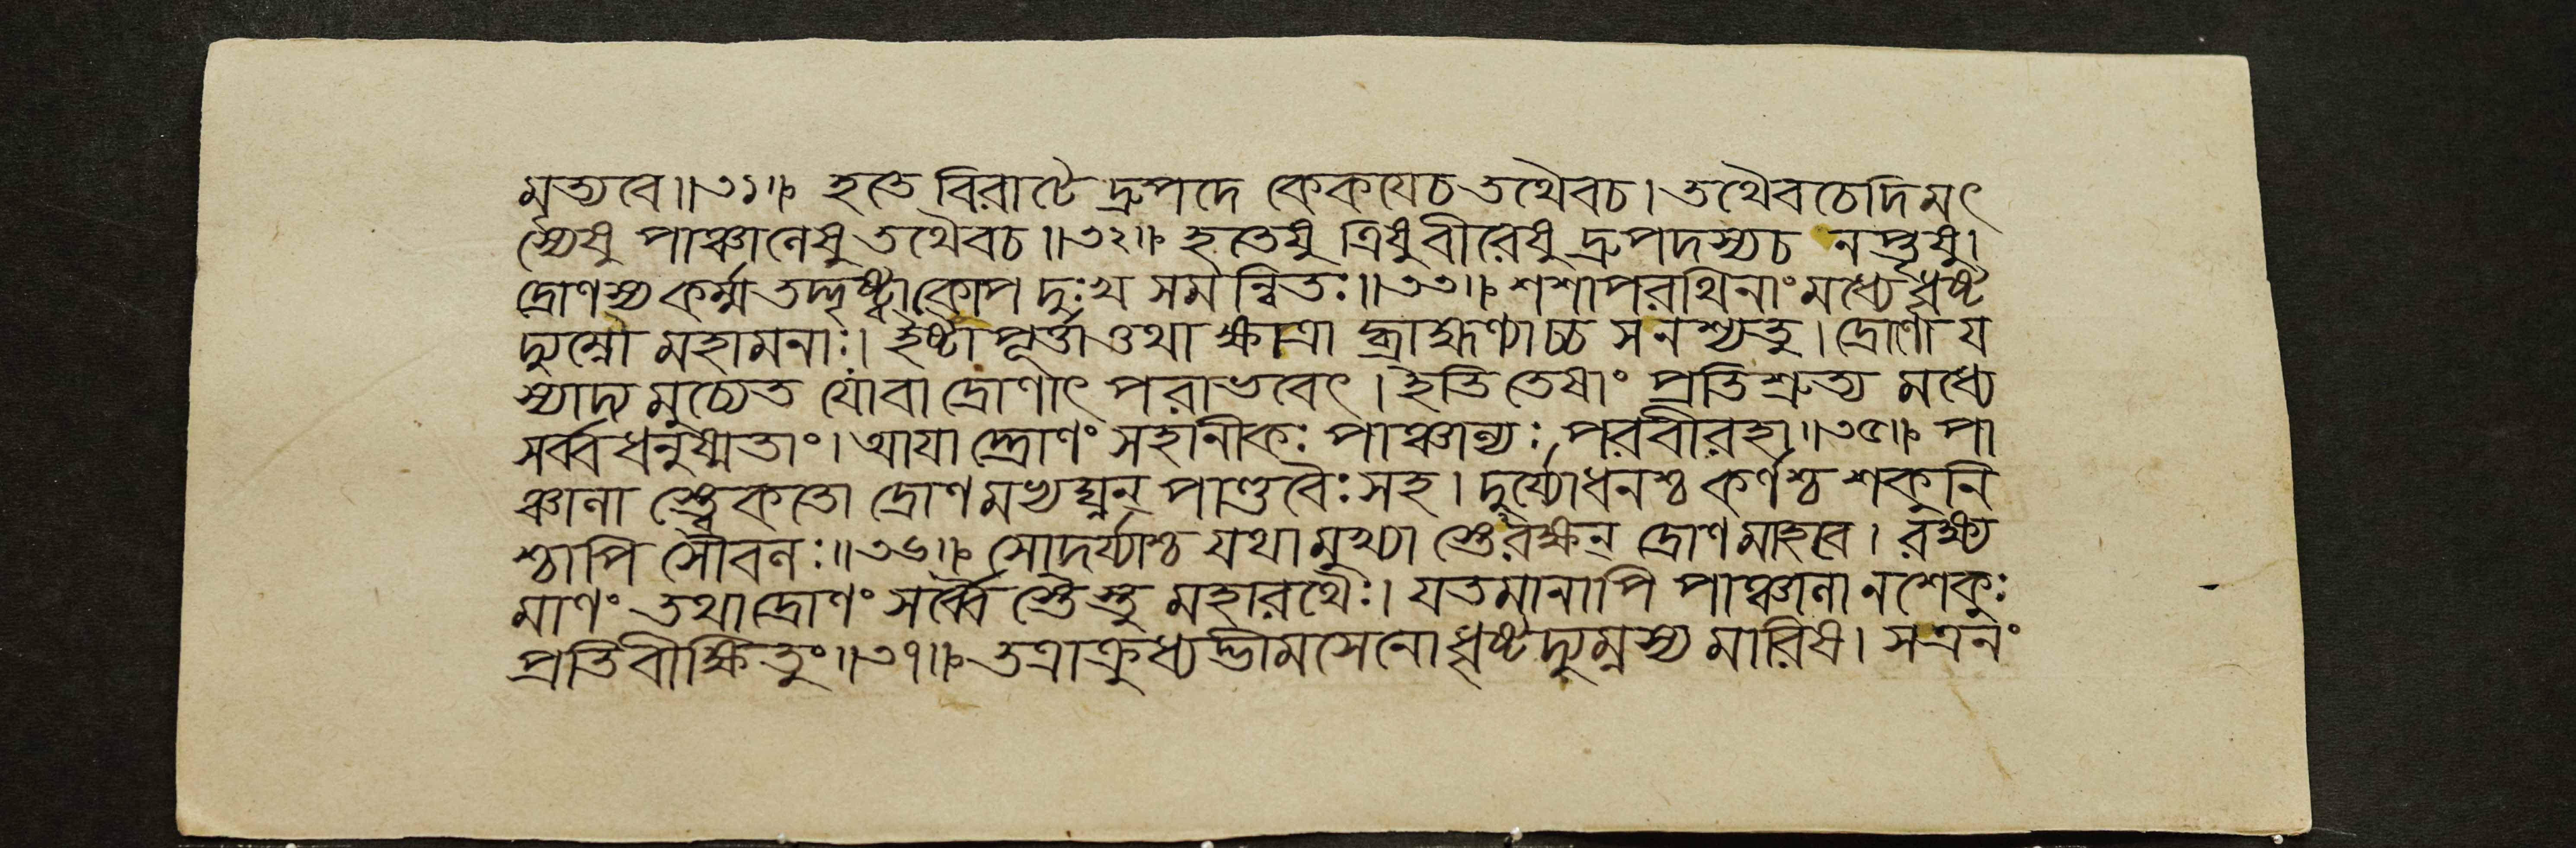 মৃত্যবে॥৩১॥ হতে বিরাটে দ্রুপদে কেকযেচ তথৈবচ। তথৈবচেদিমৎ
স্যেষু পাঞ্চালেষু তথৈবচ॥৩২॥ হতেষু ত্রিষু বীরেষু দ্রুপদস্যচ নপ্তৃষু।
দ্রোণস্য কর্ম্ম তদ্দৃষ্ট্বা কোপ দুঃখ সমন্বিতঃ॥৩৩॥ শশাপ রথিনাং মধ্যে ধৃষ্ট
দ্যুম্নো মহামনাঃ। ইষ্টাপূর্ত্তাত্তথা ক্ষাত্রা দ্ব্রাহ্মণ্যাচ্চ সনশ্যতু। দ্রোণো য
স্যাদ্য মুচ্যেত যোবা দ্রোণাৎ পরাভবেৎ। ইতি তেষাং প্রতিশ্রুত্য মধ্যে
সর্ব্বধনুষ্মতাং। আযা দ্দ্রোণং সহানীকঃ পাঞ্চাল্যঃ পরবীরহা॥৩৫॥ পা
ঞ্চালা স্ত্বেকতো দ্রোণ মভ্যঘ্নন্ পাণ্ডবৈঃ সহ। দুর্য্যোধনশ্চ কর্ণশ্চ শকুনি
শ্চাপি সৌবলঃ॥৩৬॥ সোদর্য্যাশ্চ যথা মুখ্যা স্তেঽরক্ষন্ দ্রোণ মাহবে। রক্ষ্য
মাণং তথা দ্রোণং সর্ব্বৈ স্তৈস্তু মহারথৈঃ। যতমানাপি পাঞ্চালা ন শেকুঃ
প্রতিবীক্ষিতুং॥৩৭॥ তত্রাক্রুধ্যদ্ভীমসেনো ধৃষ্টদ্যুম্নস্য মারিষ। স এনং